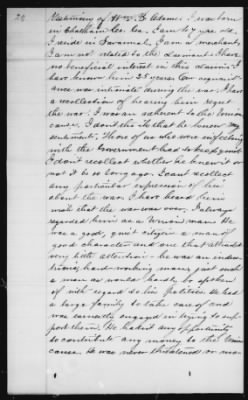 28 Testimony of Wm. B. Adams. I was born
in Chatham Co. Ga. I am 47 yrs. old.
I reside in Savannah, I am a merchant.
I am not related to the claimant & have
no beneficial interest in this claim. I
have known him 25 years. Our acquaint-
ance was intimate during the war. I have
a recollection of hearing him regret
the war. I was an adherent to the Union
cause, I don't like to that he knew my
sentiment. Those of us who were sympathizing
with the Government had to keep quiet
I don't recollect whether he knew it or
not it is so long ago. I cant recollect
any particular expression of his
about the war. I have heard him
wish that the war was over. I always
regarded him as a Union man. He
was a good, quiet citizen a man of
good character and one that attracted
very little attention. he was an indus-
trious, hard-working man, just such
a man as would hardly be spoken
of with regard to his politics. He had
a large family to take care of and
was earnestly engaged in trying to sup-
port them. He hadn't any opportunity
to contribute any money to the Union
cause. He was never threatened or mo-